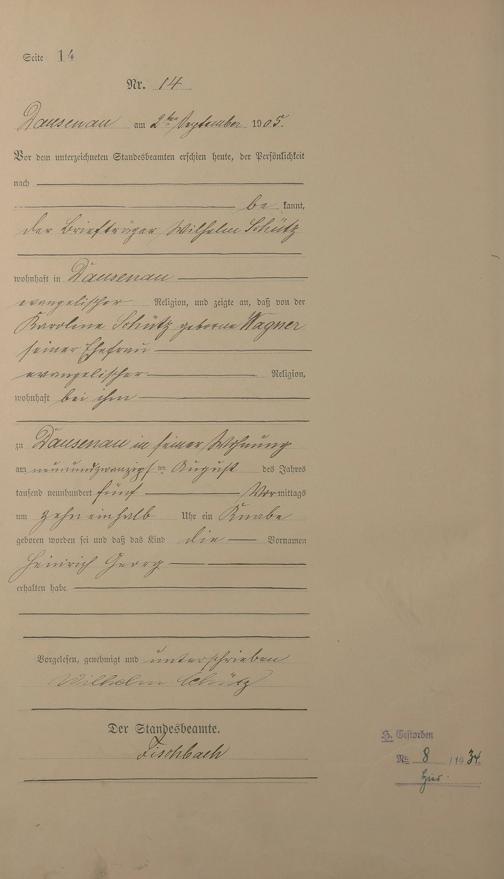 Seite 14
Nr. 14
Dausenau am 2ten September 1905.
Vor dem unterzeichneten Standesbeamten erschien heute, der Persönlichkeit
nach
be kannt,
der Briefträger Wilhelm Schütz
wohnhaft in Dausenau
evangelischer Religion, und zeigte an, daß von der
Karoline Schütz geborne Wagner
seiner Ehefrau
evangelischer Religion,
wohnhaft bei ihm
zu Dausenau in seiner Wohnung
am neunundzwanzigsten August des Jahres
tausend neunhundert fünf Vormittags
um zehn einhalb Uhr ein Knabe
geboren worden sei und daß das Kind die Vornamen
Heinrich Georg
erhalten habe
Vorgelesen, genehmigt und unterschrieben
Wilhelm Schütz
Der Standesbeamte.
Fischbach
H. Gestorben
No 8 / 1934.
hier.